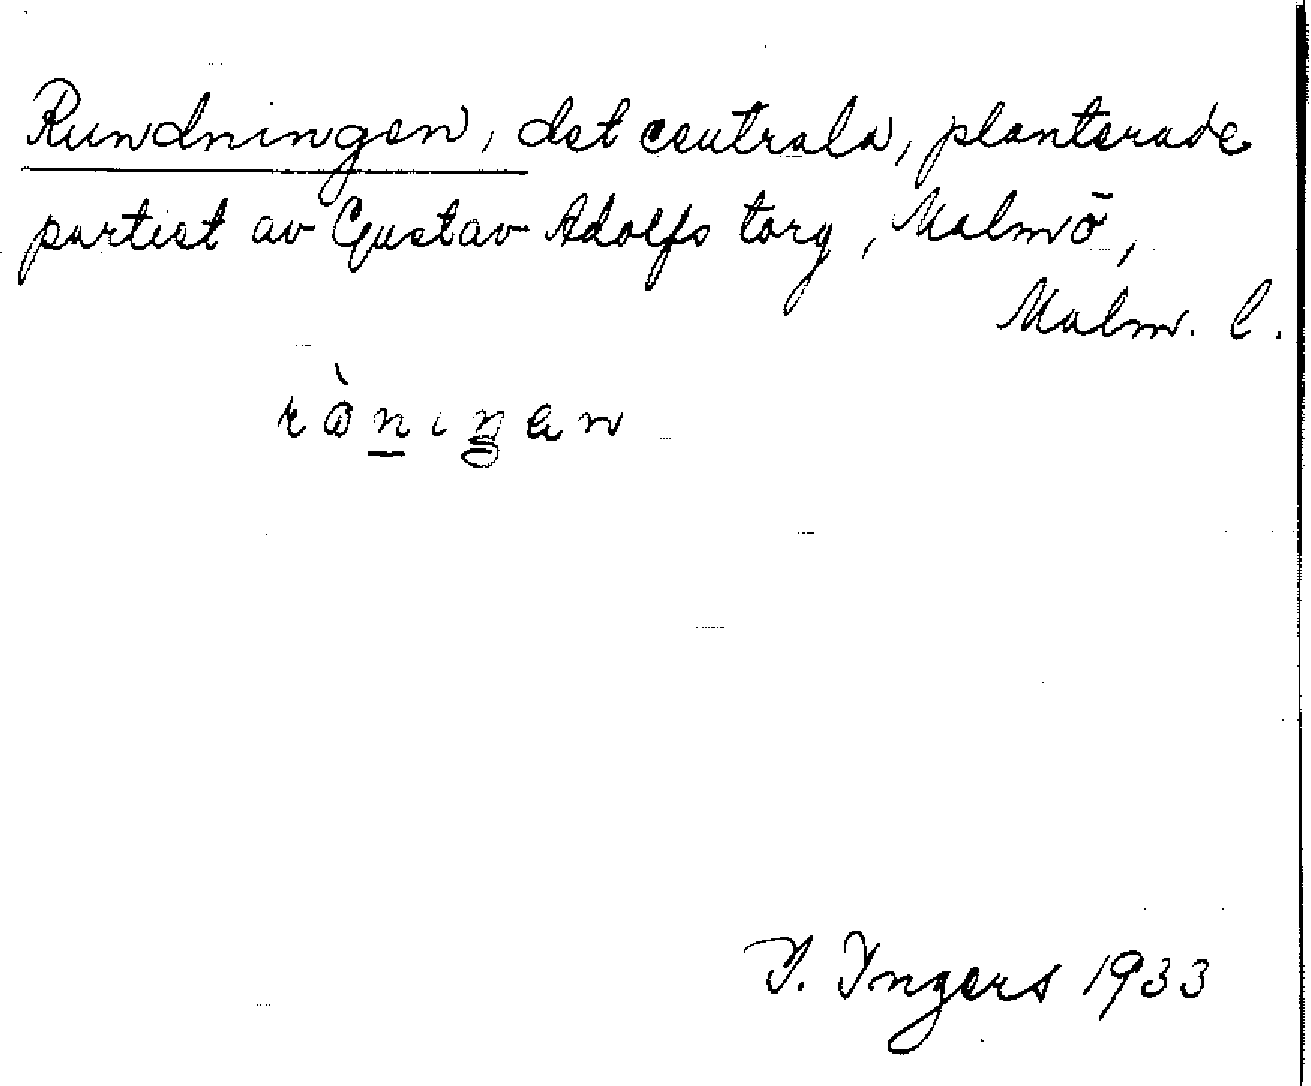 Rundningen, det centrala, planterade
partiet av Gustav Adolfs torg, Malmö,
Malm. l.
I. Ingers 1933